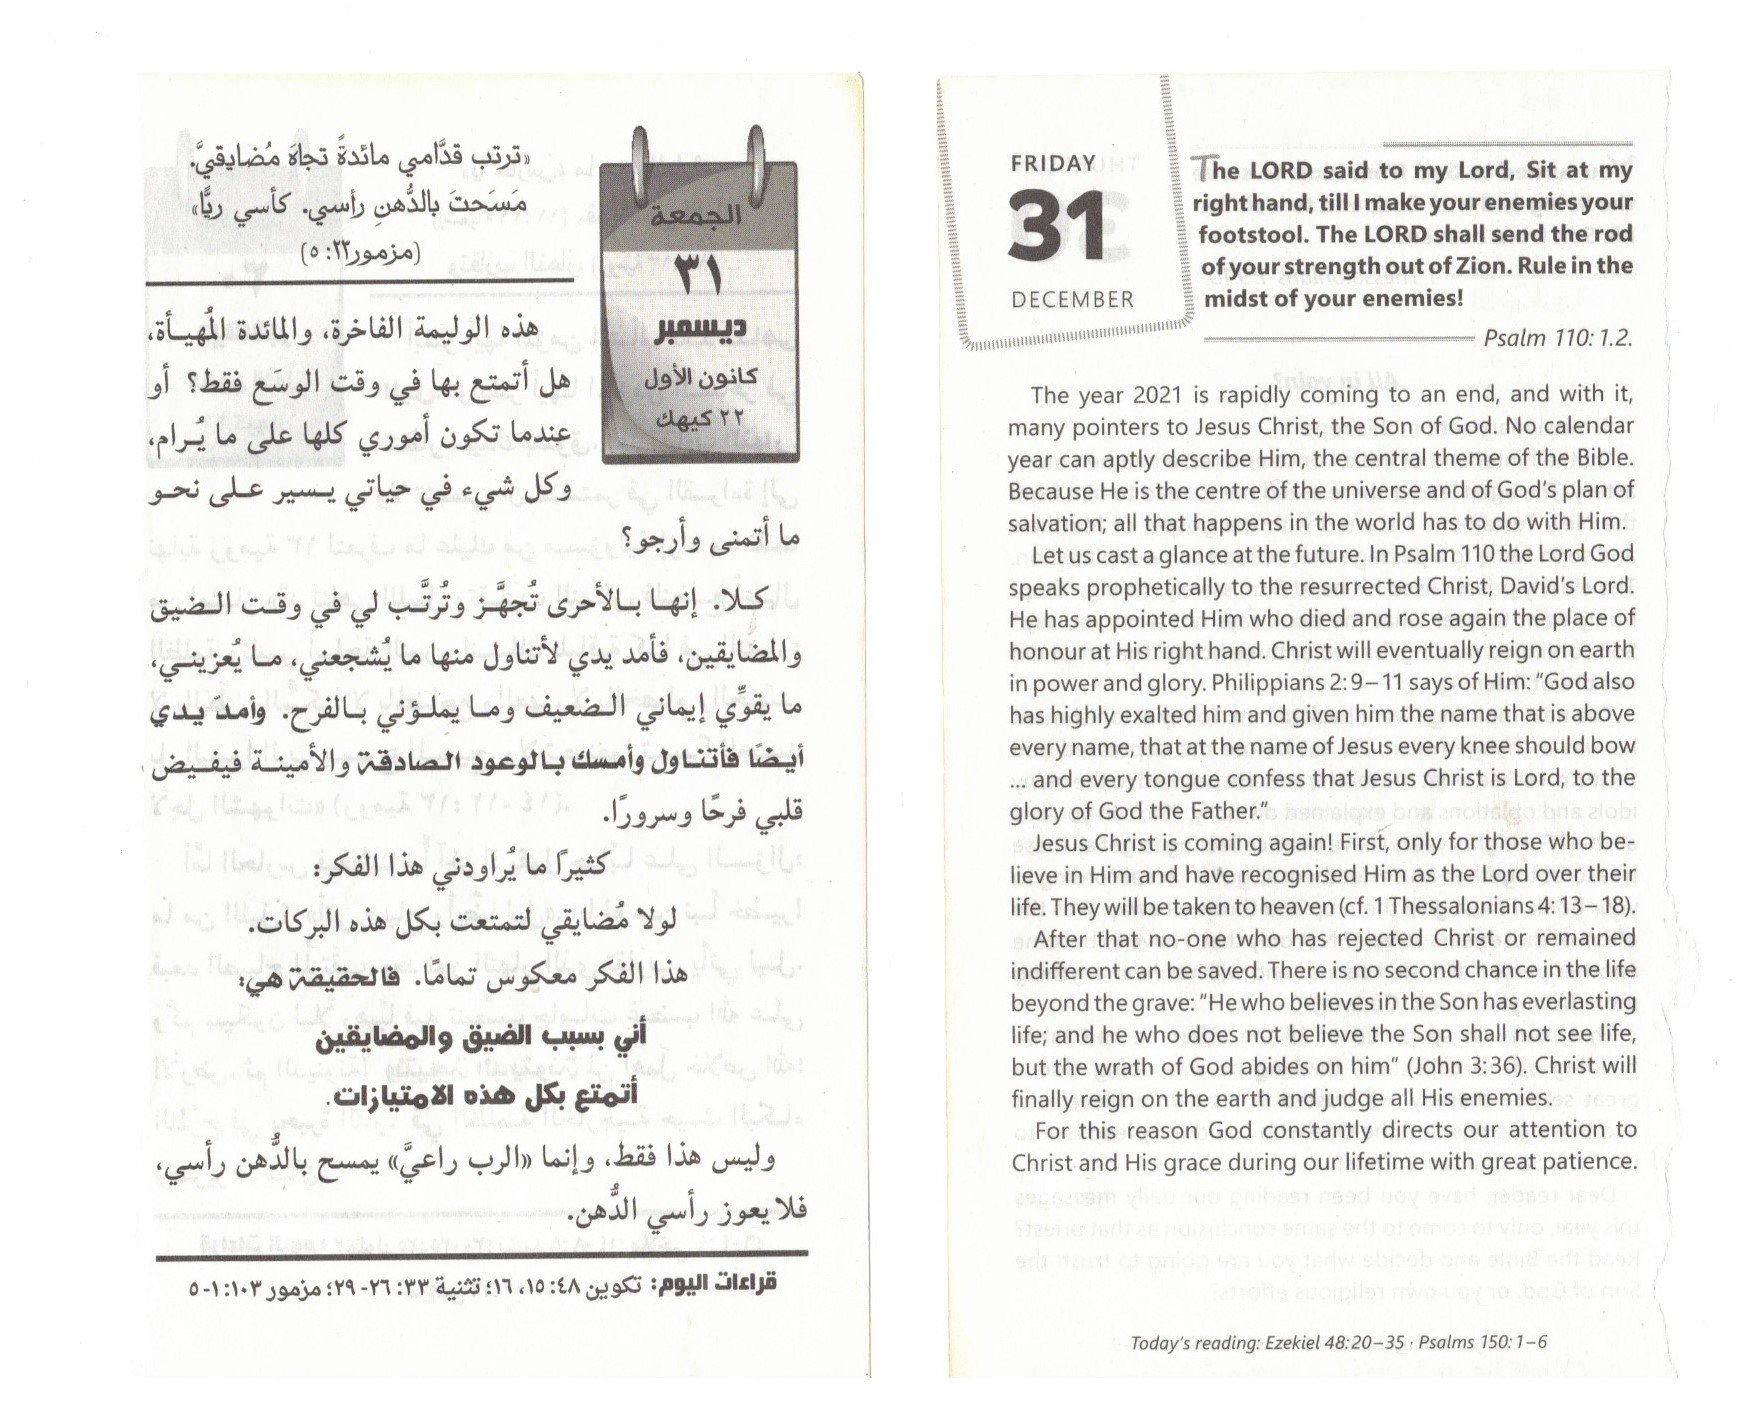 «ترتب قدَّامي مائدةً تجاهَ مُضايقيَّ.
مَسَحتَ بالدُّهنِ رأسي. كأسي ريًّا»
(مزمور٢٣: ٥)
الجمعة
٣١
ديسمبر
كانون الأول
٢٢ كيهك
هذه الوليمة الفاخرة، والمائدة المُهيأة،
هل أتمتع بها في وقت الوسَع فقط؟ أو
عندما تكون أموري كلها على ما يُرام،
وكل شيء في حياتي يسير على نحو
ما أتمنى وأرجو؟
كلا. إنها بالأحرى تُجهَّز وتُرتَّب لي في وقت الضيق
والمضايقين، فأمد يدي لأتناول منها ما يُشجعني، ما يُعزيني،
ما يقوِّي إيماني الضعيف وما يملؤني بالفرح. وأمدّ يدي
أيضًا فأتناول وأمسك بالوعود الصادقة والأمينة فيفيض
قلبي فرحًا وسرورًا.
كثيرًا ما يُراودني هذا الفكر:
لولا مُضايقي لتمتعت بكل هذه البركات.
هذا الفكر معكوس تمامًا. فالحقيقة هي:
أني بسبب الضيق والمضايقين
أتمتع بكل هذه الامتيازات.
وليس هذا فقط، وإنما «الرب راعيَّ» يمسح بالدُّهن رأسي،
فلا يعوز رأسي الدُّهن.
قراءات اليوم: تكوين ٤٨: ١٥، ١٦؛ تثنية ٣٣: ٢٦- ٢٩؛ مزمور ١٠٣: ١- ٥
FRIDAY
31
DECEMBER
The LORD said to my Lord, Sit at my
right hand, till I make your enemies your
footstool. The LORD shall send the rod
of your strength out of Zion. Rule in the
midst of your enemies!
Psalm 110: 1.2.
The year 2021 is rapidly coming to an end, and with it,
many pointers to Jesus Christ, the Son of God. No calendar
year can aptly describe Him, the central theme of the Bible.
Because He is the centre of the universe and of God's plan of
salvation; all that happens in the world has to do with Him.
Let us cast a glance at the future. In Psalm 110 the Lord God
speaks prophetically to the resurrected Christ, David's Lord.
He has appointed Him who died and rose again the place of
honour at His right hand. Christ will eventually reign on earth
in power and glory. Philippians 2: 9–11 says of Him: "God also
has highly exalted him and given him the name that is above
every name, that at the name of Jesus every knee should bow
... and every tongue confess that Jesus Christ is Lord, to the
glory of God the Father."
Jesus Christ is coming again! First, only for those who be-
lieve in Him and have recognised Him as the Lord over their
life. They will be taken to heaven (cf. 1 Thessalonians 4: 13–18).
After that no-one who has rejected Christ or remained
indifferent can be saved. There is no second chance in the life
beyond the grave: "He who believes in the Son has everlasting
life; and he who does not believe the Son shall not see life,
but the wrath of God abides on him" (John 3: 36). Christ will
finally reign on the earth and judge all His enemies.
For this reason God constantly directs our attention to
Christ and His grace during our lifetime with great patience.
Today's reading: Ezekiel 48: 20–35 · Psalms 150: 1–6